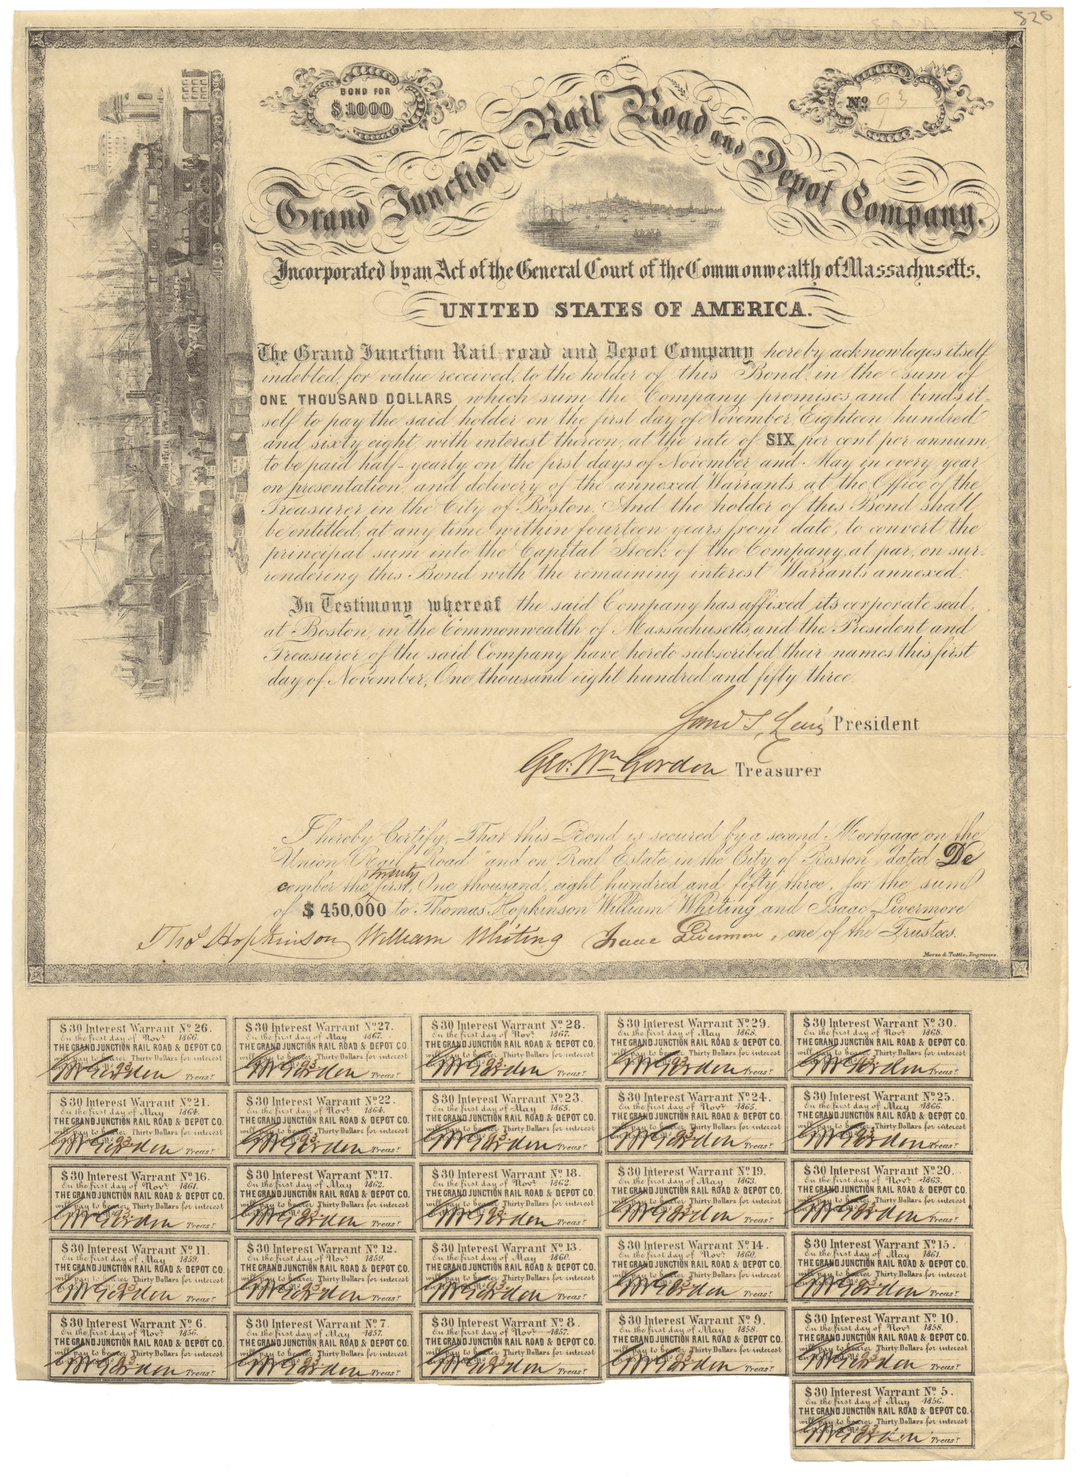 826
BOND FOR
$1000
No 93
Grand Junction Rail Road and Depot Company.
Incorporated by an Act of the General Court of the Commonwealth of Massachusetts.
UNITED STATES OF AMERICA.
The Grand Junction Rail-road and Depot Company hereby acknowleges itself
indebted, for value received, to the holder of this Bond, in the sum of
ONE THOUSAND DOLLARS which sum the Company promises, and binds it-
self to pay the said holder on the first day of November Eighteen hundred
and sixty eight, with interest thereon, at the rate of SIX per cent per annum,
to be paid half-yearly on the first days of November and May in every year
on presentation and delivery of the annexed Warrants at the Office of the
Treasurer in the City of Boston. And the holder of this Bond shall
be entitled, at any time within fourteen years from date, to convert the
principal sum into the Capital Stock of the Company, at par, on sur-
rendering this Bond with the remaining interest Warrants annexed.
In Testimony whereof the said Company has affixed its corporate seal,
at Boston, in the Commonwealth of Massachusetts, and the President and
Treasurer of the said Company have hereto subscribed their names this first
day of November, One thousand eight hundred and fifty three.
President
Geo: Wm Gordon Treasurer
I hereby Certify, That this Bond is secured by a second Mortgage on the
"Union Rail Road" and on Real Estate in the City of Boston, dated De
cember the twenty first, One thousand, eight hundred and fifty three, for the sum
of $450,000 to Thomas Hopkinson William Whiting and Isaac Livermore
Thos Hopkinson William Whiting Isaac Livermore, one of the Trustees.
Morse & Tuttle, Engravers.
$30 Interest Warrant No 26.
On the first day of Novr 1866.
THE GRAND JUNCTION RAIL ROAD & DEPOT CO.
will pay to bearer Thirty Dollars for interest
93
GW Gordon Treasr
$30 Interest Warrant No 27.
On the first day of May 1867.
THE GRAND JUNCTION RAIL ROAD & DEPOT CO.
will pay to bearer Thirty Dollars for interest
93
GW Gordon Treasr
$30 Interest Warrant No 28.
On the first day of Novr 1867.
THE GRAND JUNCTION RAIL ROAD & DEPOT CO.
will pay to bearer Thirty Dollars for interest
93
GW Gordon Treasr
$30 Interest Warrant No 29.
On the first day of May 1868.
THE GRAND JUNCTION RAIL ROAD & DEPOT CO.
will pay to bearer Thirty Dollars for interest
93
GW Gordon Treasr
$30 Interest Warrant No 30.
On the first day of Novr 1868.
THE GRAND JUNCTION RAIL ROAD & DEPOT CO.
will pay to bearer Thirty Dollars for interest
93
GW Gordon Treasr
$30 Interest Warrant No 21.
On the first day of May 1864.
THE GRAND JUNCTION RAIL ROAD & DEPOT CO.
will pay to bearer Thirty Dollars for interest
93
GW Gordon Treasr
$30 Interest Warrant No 22.
On the first day of Novr 1864.
THE GRAND JUNCTION RAIL ROAD & DEPOT CO.
will pay to bearer Thirty Dollars for interest
93
GW Gordon Treasr
$30 Interest Warrant No 23.
On the first day of May 1865.
THE GRAND JUNCTION RAIL ROAD & DEPOT CO.
will pay to bearer Thirty Dollars for interest
93
GW Gordon Treasr
$30 Interest Warrant No 24.
On the first day of Novr 1865.
THE GRAND JUNCTION RAIL ROAD & DEPOT CO.
will pay to bearer Thirty Dollars for interest
93
GW Gordon Treasr
$30 Interest Warrant No 25.
On the first day of May 1866.
THE GRAND JUNCTION RAIL ROAD & DEPOT CO.
will pay to bearer Thirty Dollars for interest
93
GW Gordon Treasr
$30 Interest Warrant No 16.
On the first day of Novr 1861.
THE GRAND JUNCTION RAIL ROAD & DEPOT CO.
will pay to bearer Thirty Dollars for interest
93
GW Gordon Treasr
$30 Interest Warrant No 17.
On the first day of May 1862.
THE GRAND JUNCTION RAIL ROAD & DEPOT CO.
will pay to bearer Thirty Dollars for interest
93
GW Gordon Treasr
$30 Interest Warrant No 18.
On the first day of Novr 1862.
THE GRAND JUNCTION RAIL ROAD & DEPOT CO.
will pay to bearer Thirty Dollars for interest
93
GW Gordon Treasr
$30 Interest Warrant No 19.
On the first day of May 1863.
THE GRAND JUNCTION RAIL ROAD & DEPOT CO.
will pay to bearer Thirty Dollars for interest
93
GW Gordon Treasr
$30 Interest Warrant No 20.
On the first day of Novr 1863.
THE GRAND JUNCTION RAIL ROAD & DEPOT CO.
will pay to bearer Thirty Dollars for interest
93
GW Gordon Treasr
$30 Interest Warrant No 11.
On the first day of May 1859.
THE GRAND JUNCTION RAIL ROAD & DEPOT CO.
will pay to bearer Thirty Dollars for interest
93
GW Gordon Treasr
$30 Interest Warrant No 12.
On the first day of Novr 1859.
THE GRAND JUNCTION RAIL ROAD & DEPOT CO.
will pay to bearer Thirty Dollars for interest
93
GW Gordon Treasr
$30 Interest Warrant No 13.
On the first day of May 1860.
THE GRAND JUNCTION RAIL ROAD & DEPOT CO.
will pay to bearer Thirty Dollars for interest
93
GW Gordon Treasr
$30 Interest Warrant No 14.
On the first day of Novr 1860.
THE GRAND JUNCTION RAIL ROAD & DEPOT CO.
will pay to bearer Thirty Dollars for interest
93
GW Gordon Treasr
$30 Interest Warrant No 15.
On the first day of May 1861.
THE GRAND JUNCTION RAIL ROAD & DEPOT CO.
will pay to bearer Thirty Dollars for interest
93
GW Gordon Treasr
$30 Interest Warrant No 6.
On the first day of Novr 1856.
THE GRAND JUNCTION RAIL ROAD & DEPOT CO.
will pay to bearer Thirty Dollars for interest
93
GW Gordon Treasr
$30 Interest Warrant No 7.
On the first day of May 1857.
THE GRAND JUNCTION RAIL ROAD & DEPOT CO.
will pay to bearer Thirty Dollars for interest
93
GW Gordon Treasr
$30 Interest Warrant No 8.
On the first day of Novr 1857.
THE GRAND JUNCTION RAIL ROAD & DEPOT CO.
will pay to bearer Thirty Dollars for interest
93
GW Gordon Treasr
$30 Interest Warrant No 9.
On the first day of May 1858.
THE GRAND JUNCTION RAIL ROAD & DEPOT CO.
will pay to bearer Thirty Dollars for interest
93
GW Gordon Treasr
$30 Interest Warrant No 10.
On the first day of Novr 1858.
THE GRAND JUNCTION RAIL ROAD & DEPOT CO.
will pay to bearer Thirty Dollars for interest
93
GW Gordon Treasr
$30 Interest Warrant No 5.
On the first day of May 1856.
THE GRAND JUNCTION RAIL ROAD & DEPOT CO.
will pay to bearer Thirty Dollars for interest
93
GW Gordon Treasr